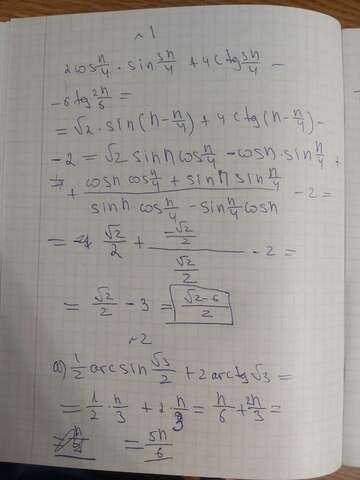 ~1
2cos π/4 · sin 3π/4 + 4ctg 3π/4 -
- 6tg 2π/6 =
= √2 · sin(π - π/4) + 4ctg(π - π/4) -
- 2 = √2 sinπ cos π/4 - cosπ · sin π/4 +
+ (cosπ cos π/4 + sinπ sin π/4)/(sinπ cos π/4 - sin π/4 cosπ) - 2 =
= √2/2 + (-√2/2)/(√2/2) - 2 =
= √2/2 - 3 = (√2-6)/2
~2
a) 1/2 arcsin √3/2 + 2arctg√3 =
= 1/2 · π/3 + 2 · π/3 = π/6 + 2π/3 =
= 5π/6